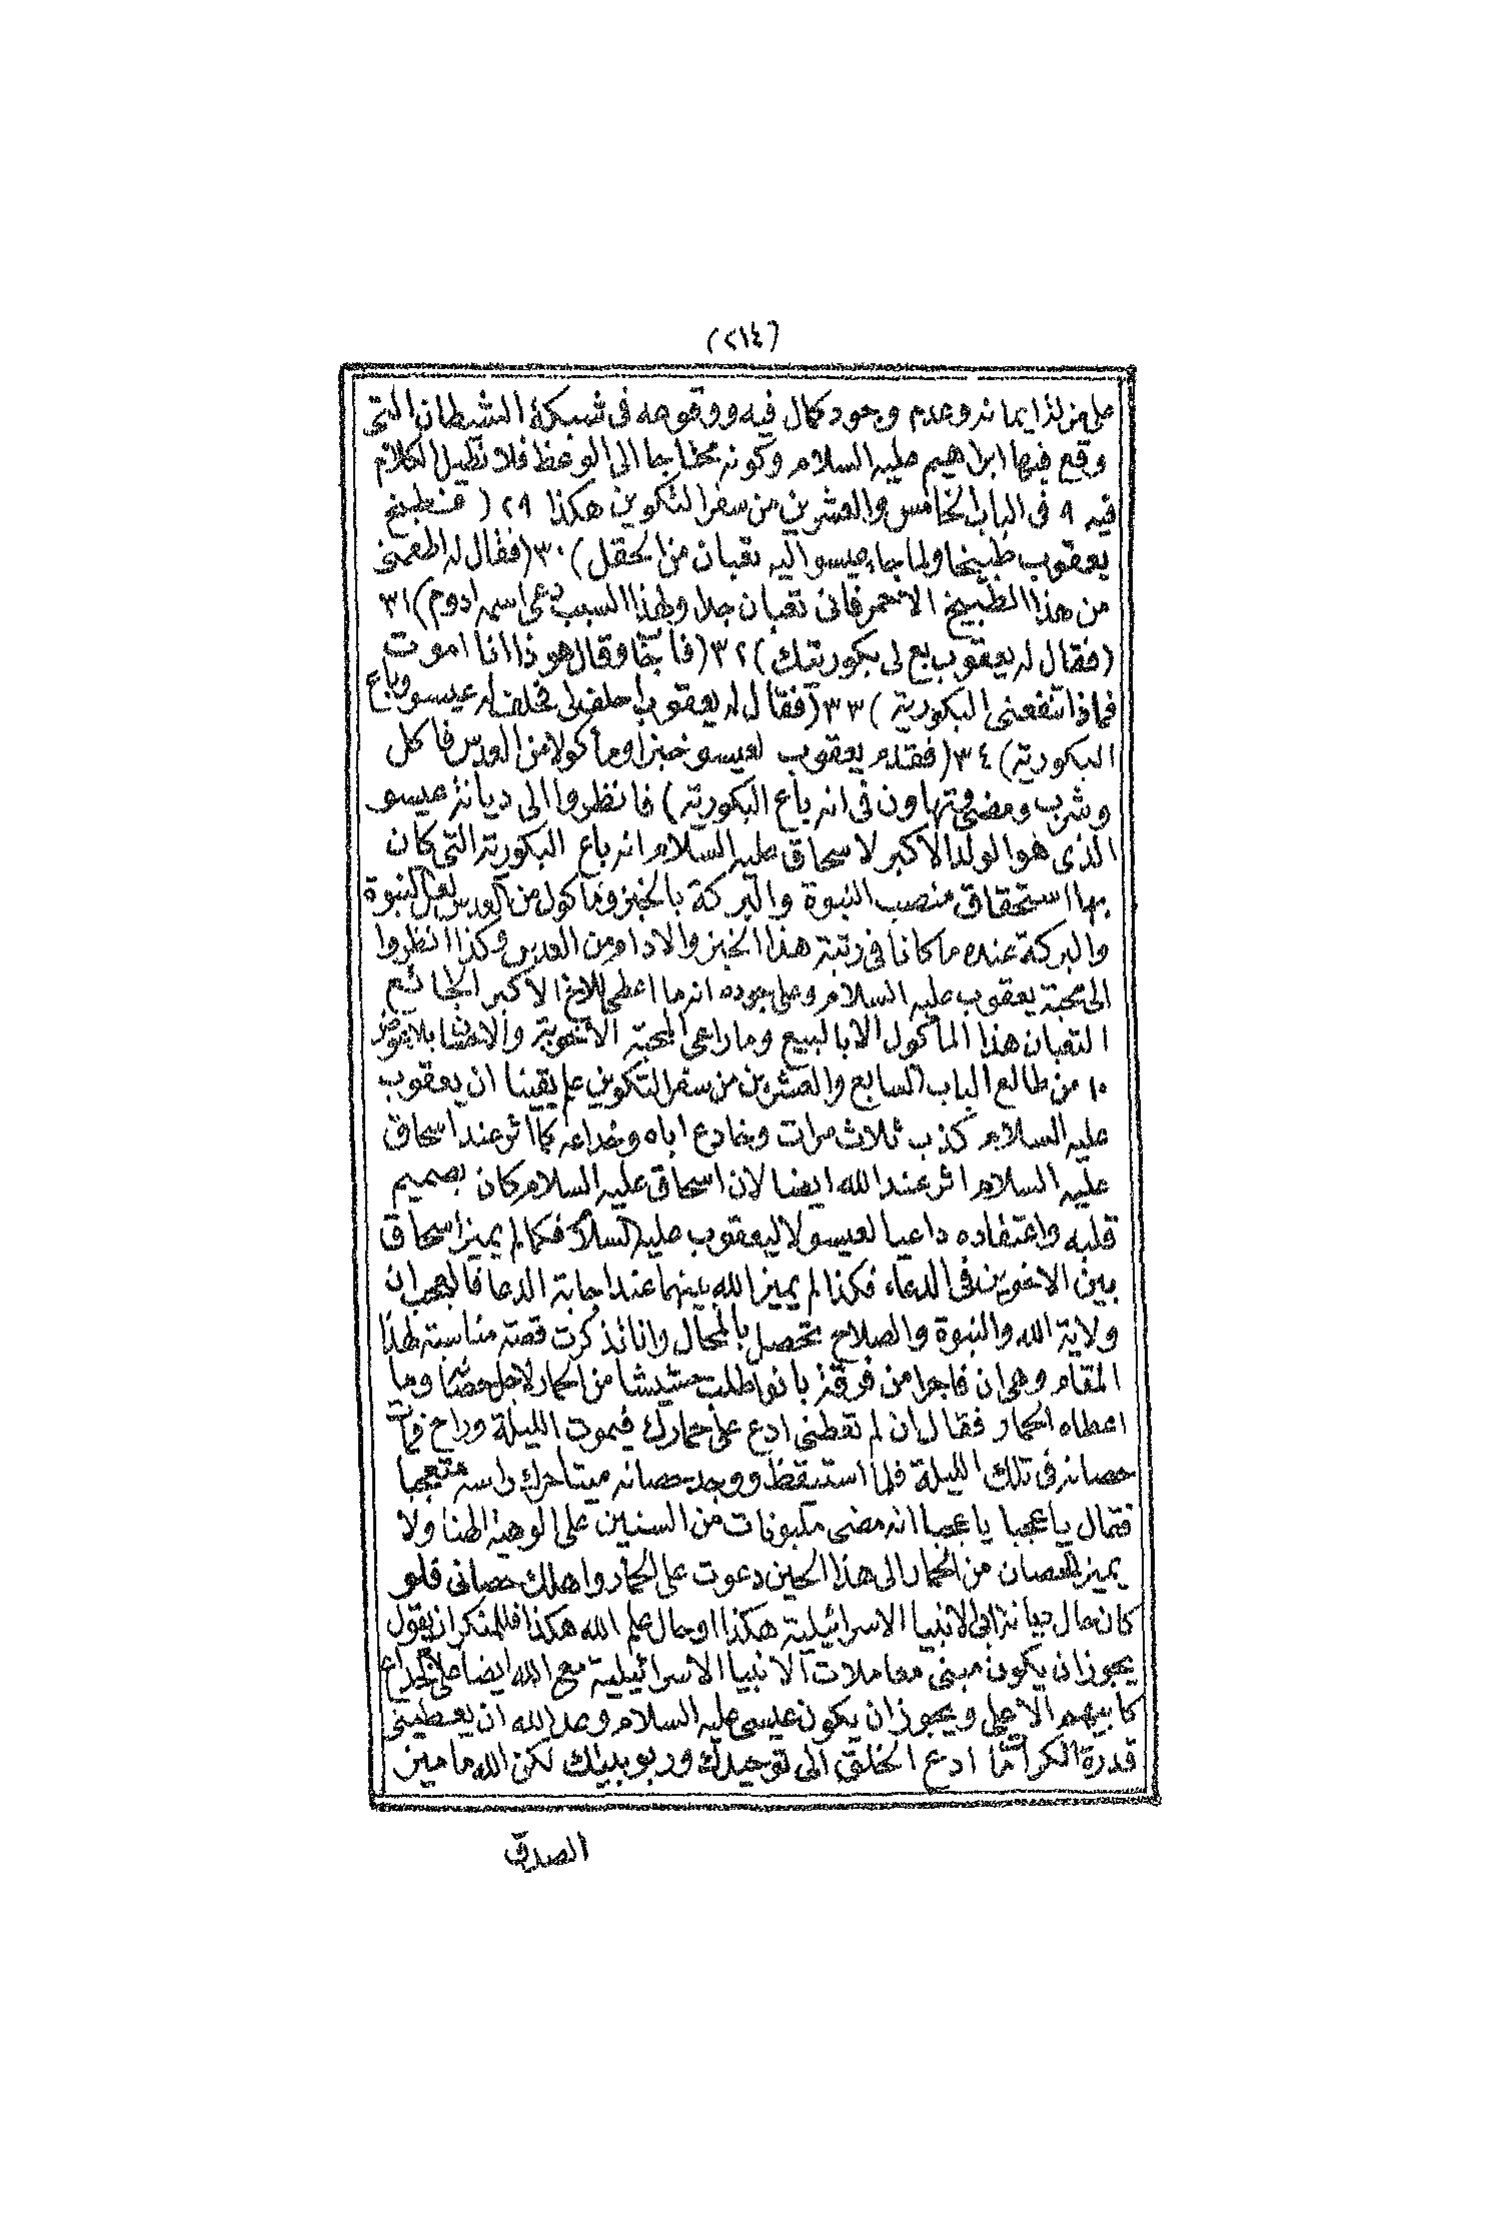 (٢١٤)
ايمانه وعدم وجود كمال فيه ووقوعه فى شبكة الشيطان التى
وقع فيها ابراهيم عليه السلام وكونه محتاجا الى الوعظ فلا نطيل الكلام
فيه ٩ فى الباب الخامس والعشرين من سفر التكوين هكذا ٢٩ ( فطبخ
يعقوب طبيخا ولما جاء عيسو اليه تعبان من الحقل ) ٣٠ ( فقال له اطعمنى
من هذا الطبيخ الاحمر فانى تعبان جدا ولهذا السبب دعى اسمه ادوم ) ٣١
( فقال له يعقوب بع لى بكوريتك ) ٣٢ ( فاجاب وقال هو ذا انا اموت
فماذا تنفعنى البكورية ) ٣٣ ( فقال له يعقوب احلف لى فحلف له عيسو وباع
البكورية ) ٣٤ ( فقدم يعقوب لعيسو خبزا وماكولا من العدس فاكل
وشرب ومضى وتهاون فى انه باع البكورية ) فانظروا الى ديانة عيسو
الذى هو الولد الاكبر لاسحاق عليه السلام انه باع البكورية التى كان
بها استحقاق منصب النبوة والبركة بالخبز وماكول من العدس لعل النبوة
والبركة عنده ما كانا فى رتبة هذا الخبز والادام من العدس وكذا انظروا
الى محبة يعقوب عليه السلام وعلى جوده انه ما اعطى للاخ الاكبر الجائع
التعبان هذا الماكول الا بالبيع وما راعى المحبة الاخوية والاحسان بلا عوض
١٠ من طالع الباب السابع والعشرين من سفر التكوين علم يقينا ان يعقوب
عليه السلام كذب ثلاث مرات وخادع اباه وخداعه كما اثر عند اسحاق
عليه السلام اثر عند الله ايضا لان اسحاق عليه السلام كان بصميم
قلبه واعتقاده داعيا لعيسو لا ليعقوب عليه السلام فكما لم يميز اسحاق
بين الاخوين فى الدعاء فكذا لم يميز الله بينهما عند اجابة الدعا فالعجب ان
ولاية الله والنبوة والصلاح تحصل بالمحال وانا نذكرت قصة مناسبة لهذا
المقام وهى ان فاجرا من فرقة بانوا طلب حشيشا من الحمار لاجل حصانه وما
اعطاه الحمار فقال ان لم تعطنى ادع على حمارك فيموت الليلة وراح فمات
حصانه فى تلك الليلة فلما استيقظ ووجد حصانه ميتا حرك راسه متعجبا
فقال يا عجبا يا عجبا انه مضى مكبونات من السنين على الوهية الهنا ولا
يميز الحصان من الحمار الى هذا الحين دعوت على الحمار واهلك حصانى فلو
كان حال ديانة ابى الانبيا الاسرائيلية هكذا او حال علم الله هكذا فللمنكر ان يقول
يجوز ان يكون مبنى معاملات الانبيا الاسرائيلية مع الله ايضا على الخداع
كابيهم الاعلى ويجوز ان يكون عيسى عليه السلام وعد الله ان يعطينى
قدرة الكرامة ادع الخلق الى توحيدك وربوبيتك لكن الله ما ميز
الصدق